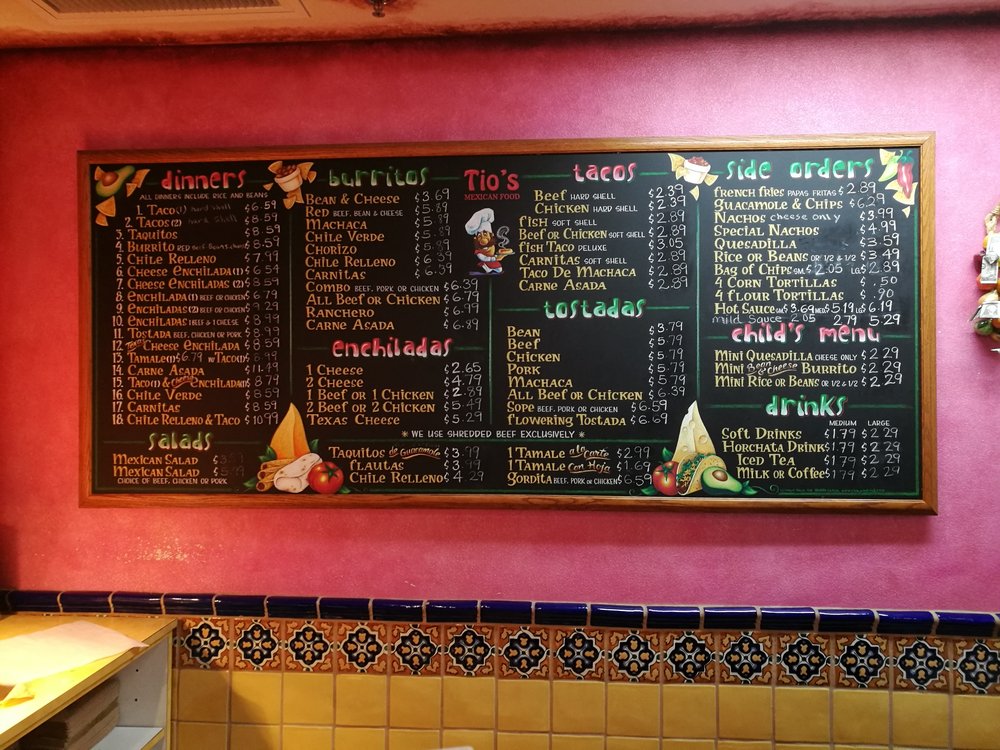 dinners
ALL DINNERS INCLUDE RICE AND BEANS
1. Taco (1) hard shell $6.59
2. Tacos (2) hard shell $8.59
3. Taquitos $8.59
4. Burrito RED Beef, Beans, cheese $8.59
5. Chile Relleno $7.99
6. Cheese Enchilada (1) $6.54
7. Cheese Enchiladas (2) $8.59
8. Enchilada (1) BEEF OR CHICKEN $6.79
9. Enchiladas (2) BEEF OR CHICKEN $9.29
10. Enchiladas 1 BEEF & 1 CHEESE $8.99
11. Tostada BEEF, CHICKEN OR PORK $8.99
12. Texas Cheese Enchilada $8.59
13. Tamale (1) $6.79 w/Taco (1) $8.99
14. Carne Asada $11.49
15. Taco (1) & Cheese Enchilada (1) $8.79
16. Chile Verde $8.59
17. Carnitas $8.59
18. Chile Relleno & Taco $10.99
salads
Mexican Salad
Mexican Salad
CHOICE OF BEEF, CHICKEN OR PORK
burritos
Bean & Cheese $3.69
Red BEEF, BEAN & CHEESE $5.89
Machaca $5.89
Chile Verde $5.89
Chorizo $5.89
Chile Relleno $6.39
Carnitas $6.39
Combo BEEF, PORK OR CHICKEN $6.39
All Beef or Chicken $6.79
Ranchero $6.99
Carne Asada $6.89
enchiladas
1 Cheese $2.65
2 Cheese $4.79
1 Beef or 1 Chicken $2.89
2 Beef or 2 Chicken $5.49
Texas Cheese $5.29
* WE USE SHREDDED BEEF EXCLUSIVELY *
Taquitos de Guacamole $3.99
flautas $3.99
Chile Relleno $4.29
Tio's
MEXICAN FOOD
tacos
Beef HARD SHELL $2.39
Chicken HARD SHELL $2.39
fish SOFT SHELL $2.89
Beef or Chicken SOFT SHELL $2.89
fish Taco DELUXE $3.05
Carnitas SOFT SHELL $2.89
Taco De Machaca $2.89
Carne Asada $2.89
tostadas
Bean $3.79
Beef $5.79
Chicken $5.79
Pork $5.79
Machaca $5.79
All Beef or Chicken $6.39
Sope BEEF, PORK OR CHICKEN $6.59
flowering Tostada $6.69
1 Tamale ala Carte $2.99
1 Tamale Con Hoja $1.69
Gordita BEEF, PORK OR CHICKEN $6.59
side orders
french fries PAPAS FRITAS $2.89
Guacamole & Chips $6.29
Nachos cheese only $3.99
Special Nachos $4.99
Quesadilla $3.59
Rice or Beans OR 1/2 & 1/2 $3.49
Bag of Chips SM. $2.05 LG $2.89
4 Corn Tortillas $.50
4 flour Tortillas $.90
Hot Sauce SM $3.69 MED $5.19 LG $6.19
mild Sauce 2.05 2.79 5.29
child's menu
Mini Quesadilla CHEESE ONLY $2.29
Mini Bean & Cheese Burrito $2.29
Mini Rice or Beans OR 1/2 & 1/2 $2.29
drinks
MEDIUM LARGE
Soft Drinks $1.79 $2.29
Horchata Drinks $1.79 $2.29
Iced Tea $1.79 $2.29
Milk or Coffee $1.79 $2.29